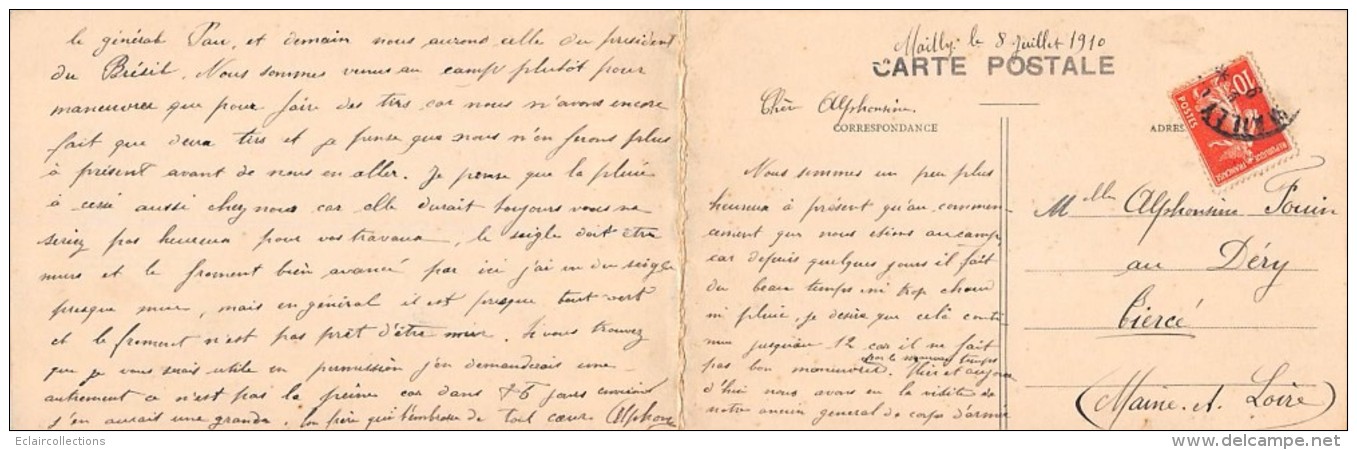 Mailly le 8 Juillet 1910
CARTE POSTALE
Chèr Alphonsine
CORRESPONDANCE
Nous sommes un peu plus
heureux à présent qu'au commen-
cement que nous étions au camp,
car depuis quelques jours il fait
du beau temps ni trop chaud
ni pluie, je désire que celà conti-
nue jusqu'au 12 car il ne fait
pas bon manœuvrer par le mauvais temps. Hier et aujour
d'hui nous avons eu la visite de
notre ancien général de corps d'armée
le général Pau, et demain nous aurons celle du president
du Brésil. Nous sommes venus au camp plutôt pour
manœuvrer que pour faire des tirs car nous n'avons encore
fait que deux tirs et je pense que nous n'en ferons plus
à présent avant de nous en aller. Je pense que la pluie
à céssé aussi chez nous car elle durait toujours vous ne
seriez pas heureux pour vos travaux, le seigle doit être
murs et le froment bien avancé par ici j'ai vu du seigle
presque mur, mais en général il est presque tout vert
et le froment n'est pas prêt d'être mur. Si vous trouvez
que je vous serais utile en permission j'en demanderais une
autrement ce n'est pas la peine car dans 5 jours environ
j'en aurais une grande. Ton frère qui t'embrasse de tout cœur Alphonse
ADRES
Melle Alphonsine Fouin
au Déry
Tiercé
(Maine-et-Loire)
10
POSTES
REPUBLIQUE FRANÇAISE
MAILLY
Eclaircollections
delcampe.net